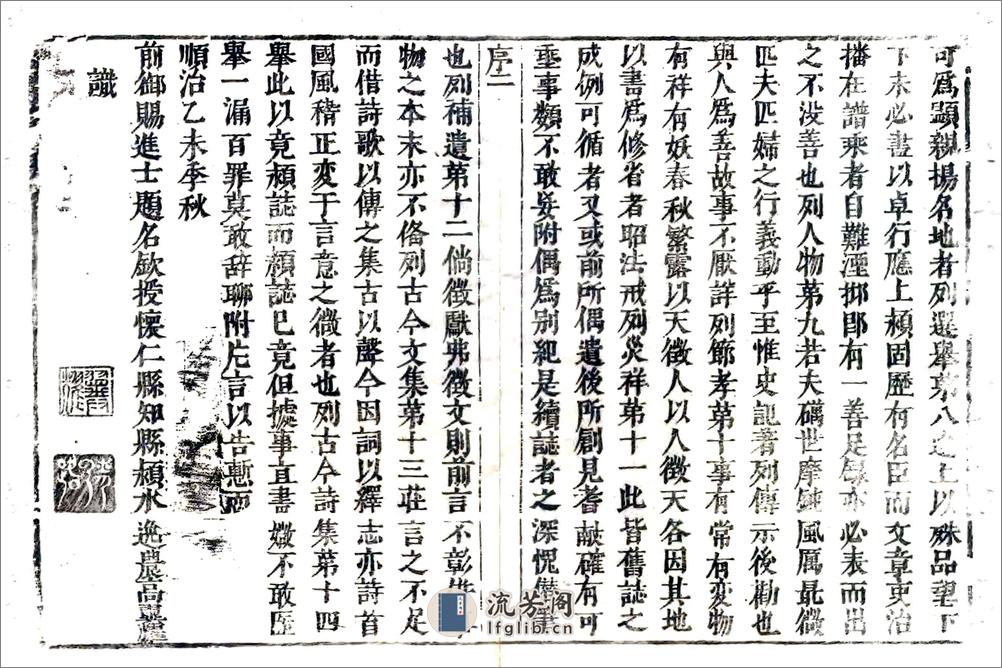 可為顯親揚名地者列選舉第八之上以殊品望下
下未必盡以卓行應上潁固歷有名臣而文章吏治
播在譜乘者自難湮抑即有一善足錄亦必表而出
之不没善也列人物第九若夫礪世摩鈍風厲最微
匹夫匹婦之行義動乎至惟史記著列傳示後勸也
與人為善故事不厭詳列節孝第十事有常有變物
有祥有妖春秋繁露以天徵人以人徵天各因其地
以書為修省者昭法戒列災祥第十一此皆舊誌之
成例可循者又或前所偶遺後所創見者献確有可
埀事類不敢妄附偶為别紀是續誌者之深愧僣畫
序二
也列補遺第十二倘徵獻弗徵文則前言不彰
物之本末亦不俻列古今文集第十三莊言之不足
而借詩歌以傳之集古以聲今因詞以繹志亦詩首
國風稽正変于言意之微者也列古今詩集第十四
舉此以竟潁誌而潁誌已竟但據事直書媺不敢匿
舉一漏百罪莫敢辞聊附片言以告慙
順治乙未季秋
前御賜進士題名欽授懷仁縣知縣潁水逸
識
流芳阁
lfglib.cn